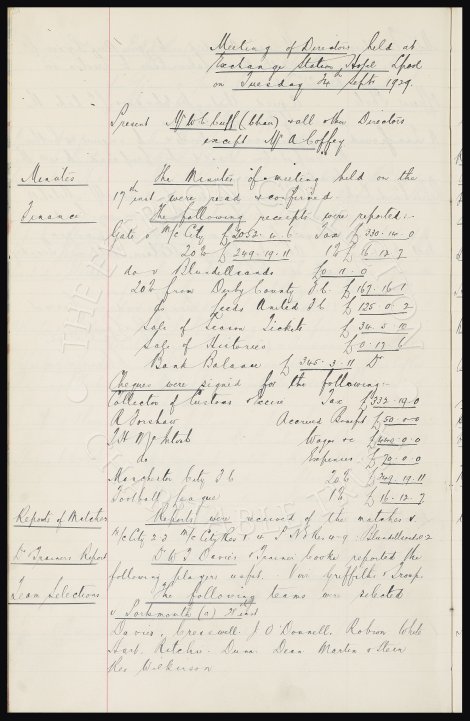 Meeting of Directors held at
Exchange Station Hotel L'pool
on Tuesday 24th Septr 1929.
Present Mr W.C. Cuff (Chair) & all other Directors
except Mr A Coffey
Minutes
The Minutes of a meeting held on the
17th inst were read & confirmed.
Finance
The following receipts were reported:-
Gate v McCity £2052.4.6 Tax £330.14.0
20% £249.19.11 1% £16.12.7
do v Blundellsands £0.11.0
20% from Derby County F.C. £167.16.1
do Leeds United F.C. £125.0.2
Sale of Season Tickets £34.5.10
Sale of Histories £0.17.6
Bank Balance £345.3.11 Dr
Cheques were signed for the following:-
Collector of Customs & Excise Tax £332.19.0
A Brshaw Accrued Benefit £50.0.0
T.H. McIntosh Wages &c £440.0.0
do Expenses £70.0.0
Manchester City F.C. 20% £249.19.11
Football League 1% £16.12.7
Reports of Matches
Reports were received of the matches v
McCity 2-3 McCity Res 4 4-9 Blundellsands 2
Dr & Trainers Report
Dr W.J. Davies & Trainer Cooke reported the
following players unfit. Griffiths & Troup.
Team Selections
The following teams were selected
v Portsmouth (a) 28 inst
Davies. Cresswell. J O'Donnell. Robson White
Hart. Ritchie. Dunn. Dean Martin & Stein
Res Wilkinson